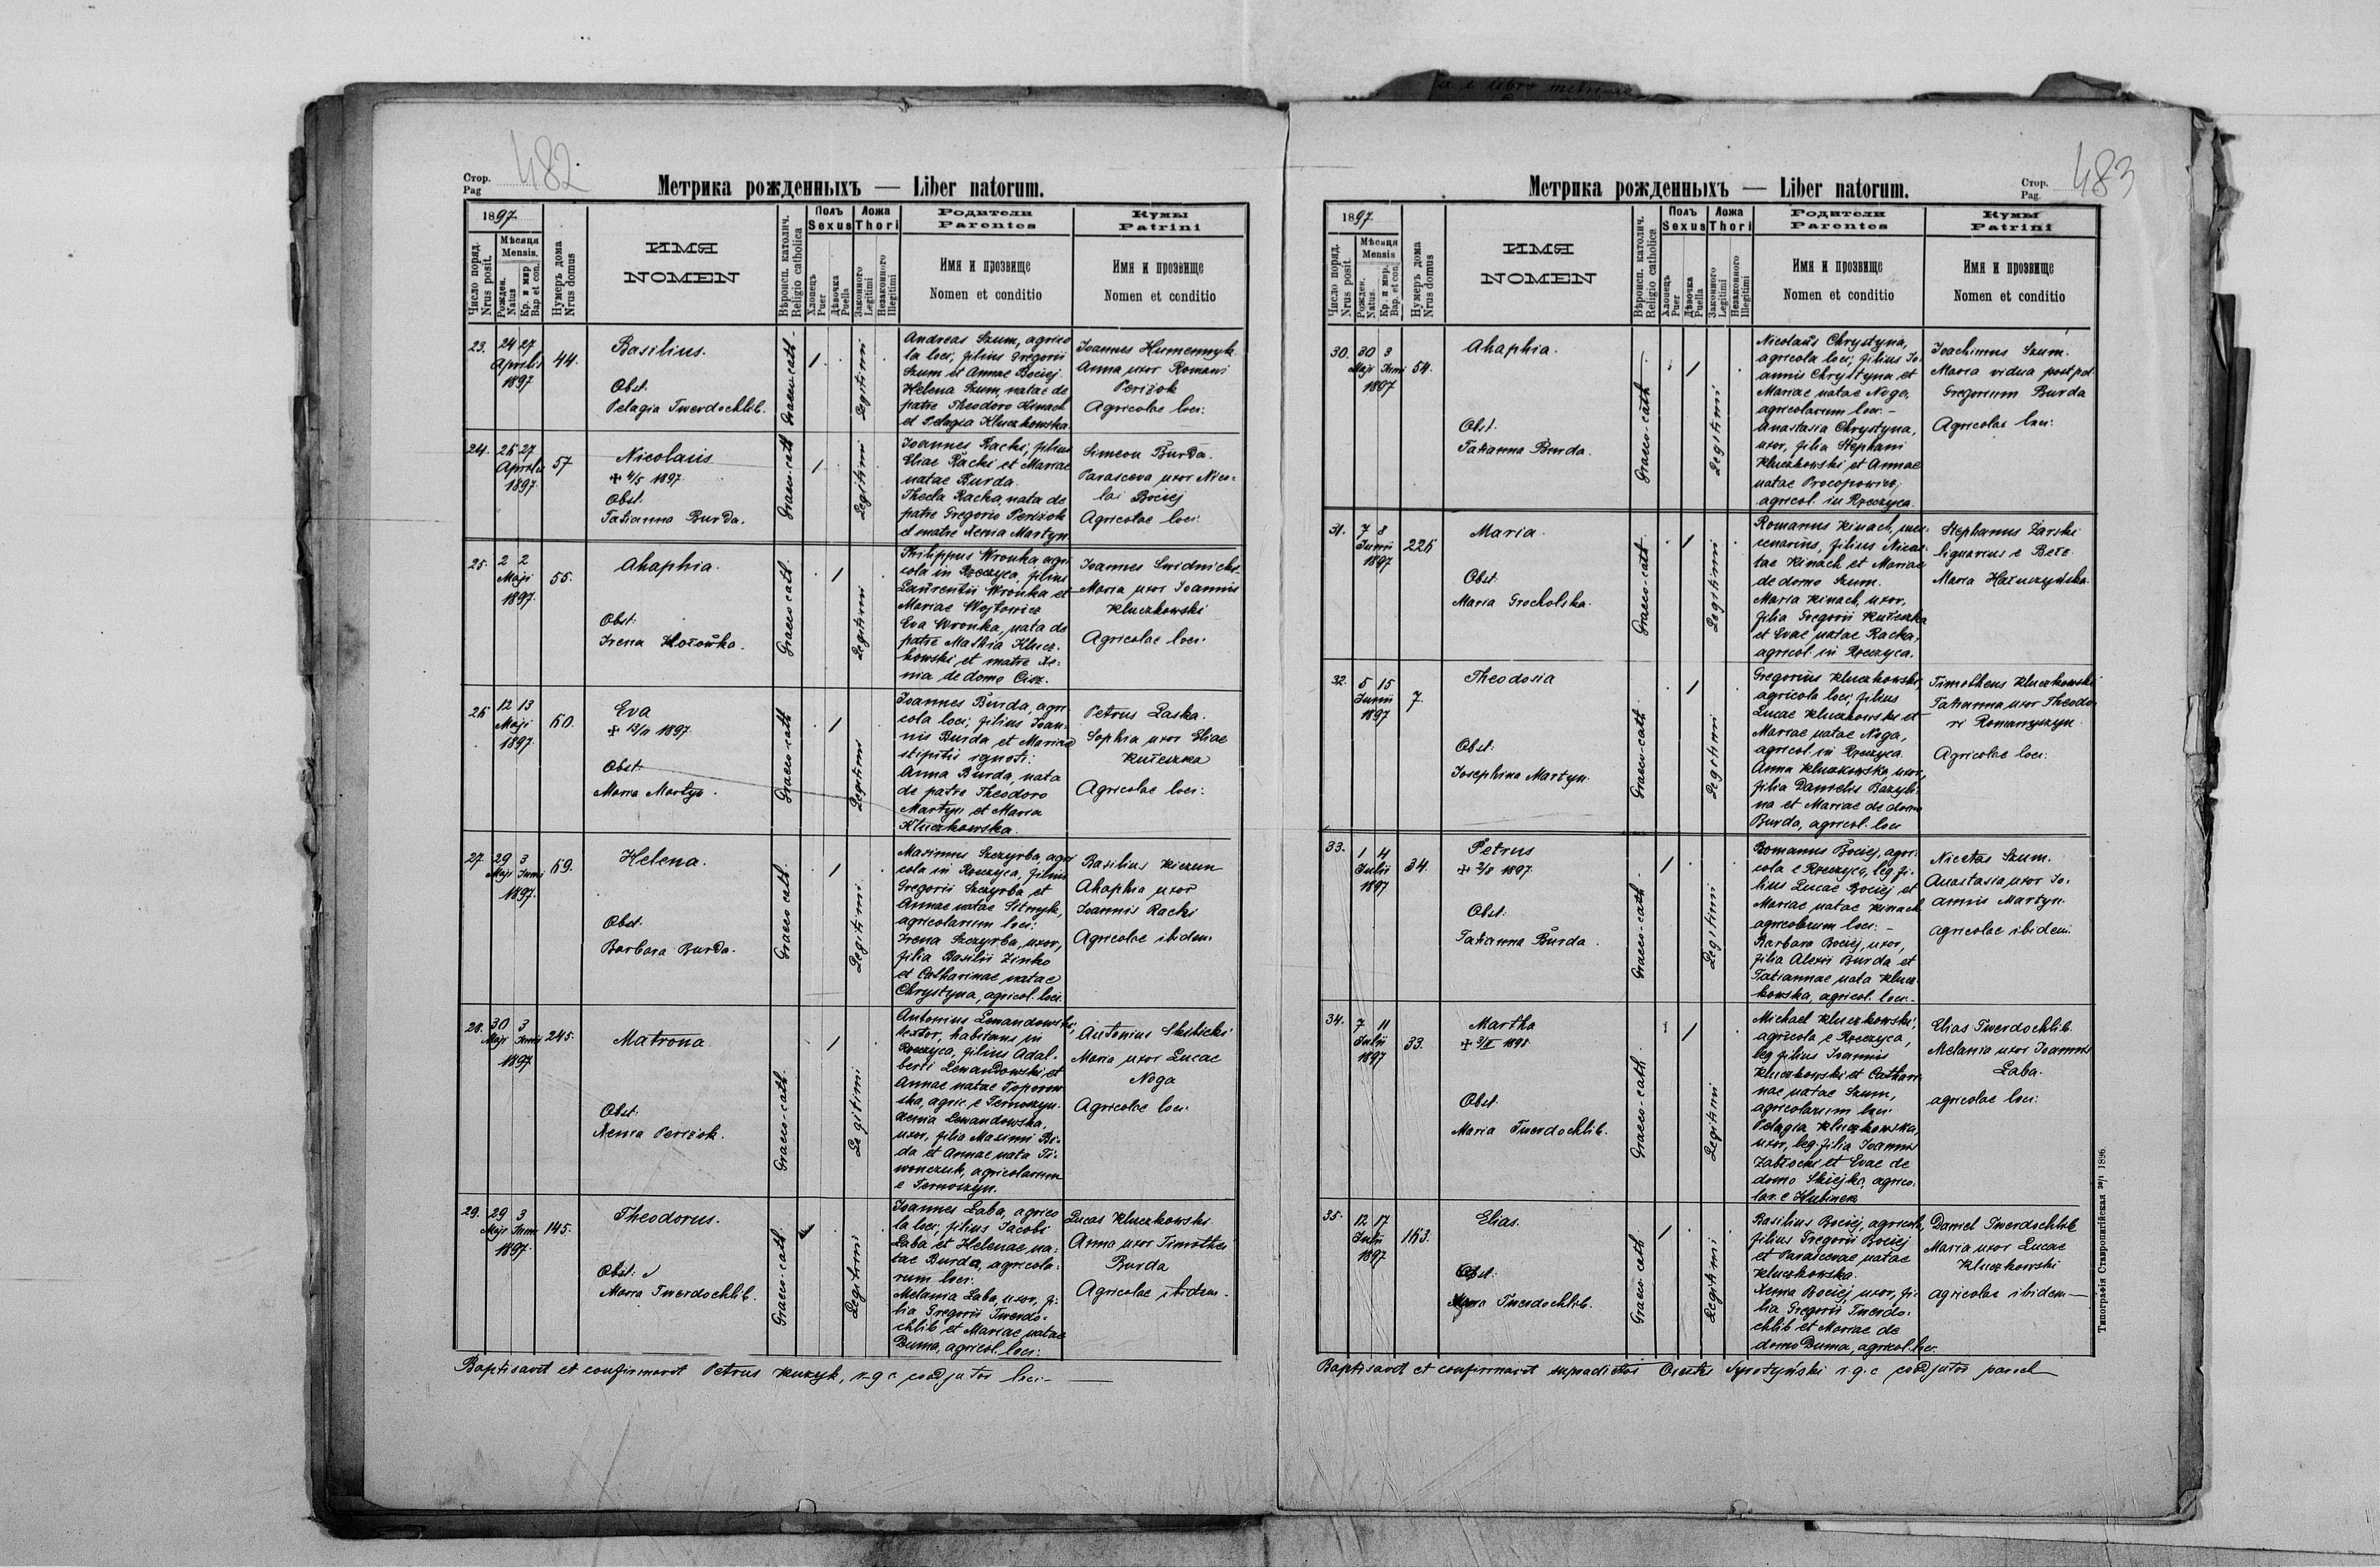 482
Стор.
Pag
Метрика рожденныхъ — Liber natorum.
1897
Число поряд.
Nrus posit.
Мѣсяця
Mensis.
Рожден.
Natus
Кр. и мир
Bap. et con.
Нумеръ дома
Nrus domus
ИМЯ
NOMEN
Вѣроисп. католич.
Religio catholica
Полъ
Sexus
Хлопецъ
Puer
Дѣвочка
Puella
Ложа
Thori
Законного
Legitimi
Незаконного
Illegitimi
Родители
Parentes
Имя и прозвище
Nomen et conditio
Кумы
Patrini
Имя и прозвище
Nomen et conditio
23. 24 27
Aprilis
1897
44.
Basilius.
Obst.
Pelagia Twerdochlib.
Graeco-cath
1
Legitimi
Andreas Szum, agrico
la loci, filius Gregorii
Szum et Annae Bociej.
Helena Szum, natae de
patre Theodoro Kinach
et Pelagia Kluczkowska
Joannes Humennyk
Anna uxor Romani
Periżok
Agricolae loci:
24. 26 27
Aprilis
1897
57
Nicolaus
✠ 4/5 1897
Obst.
Tatianna Burda.
Graeco-cath
1
Legitimi
Joannes Racki, filius
Eliae Racki et Mariae
natae Burda.
Thecla Racka, nata de
patre Gregorio Periżok
et matre Xenia Martyn
Simeon Burda.
Parasceva uxor Nico-
lai Bociej
Agricolae loci:
25. 2 2
Maji
1897.
55.
Ahaphia.
Obst:
Irena Hołowka.
Graeco cath.
1
Legitimi
Philippus Wronka agri
cola in Rzeczyca, filius
Laurentii Wronka et
Mariae Wojtowicz
Eva Wronka, nata de
patre Mathia Klucz-
kowski et matre Xe-
nia de domo Cisz.
Joannes Swidnicki
Maria uxor Joannis
Kluczkowski
Agricolae loci:
26 12 13
Maji
1897.
60.
Eva
1897
Obst:
Maria Martyn.
Graeco-cath
1
Legitimi
Joannes Burda, agri
cola loci, filius Joan-
nis Burda et Mariae
stipitis ignoti:
Anna Burda, nata
de patre Theodoro
Martyn et Maria
Kluczkowska.
Petrus Laska.
Sophia uxor Eliae
Kułeszka
Agricolae loci:
27 29 3
Maji Junii
1897.
69.
Helena.
Obst.
Barbara Burda.
Graeco cath.
1
Legitimi
Maximus Szczyrba, agri
cola in Rzeczyca, filius
Gregorii Szczyrba et
Annae natae
agricolarum loci:
Irena Szczyrba, uxor,
filia Basilii Zinko
et Catharinae natae
Chrystyna, agricol. loci.
Basilius Kiczun
Ahaphia uxor
Joannis Racki
Agricolae ibidem
28. 30 3
Maji Junii
1897
245.
Matrona
Obst:
Xenia Periżok.
Graeco-cath.
1
Legitimi
Antonius Lewandowski,
textor, habitans in
Rzeczyca, filius Adal-
berti Lewandowski et
Annae natae Toporow
ska, agric. e Ternoszyn.
Xenia Lewandowska,
uxor, filia Maximi Bi-
da et Annae nata Ti-
wonczuk, agricolarum
e Ternoszyn.
Antonius Skibicki
Maria uxor Lucae
Noga
Agricolae loci
29. 29 3
Maji Junii
1897.
145.
Theodorus.
Obst:
Maria Twerdochlib.
Graeco-cath.
Legitimi
Joannes Laba, agrico
la loci, filius Jacobi
Laba et Helenae na-
tae Burda, agricola-
rum loci:
Melania Laba, uxor, fi-
lia Gregorii Twerdo-
chlib et Mariae natae
Duma, agricol. loci:
Lucas Kluczkowski
Anna uxor Timothei
Burda
Agricolae ibidem.
Baptisavit et confirmavit Petrus Kuzyk, r.g.c. coadjutor loci
483
Стор.
Pag.
Метрика рожденныхъ — Liber natorum.
1897
Число поряд.
Nrus posit.
Мѣсяця
Mensis
Рожден.
Natus.
Кр. и мир.
Bap. et con.
Нумеръ дома
Nrus domus
ИМЯ
NOMEN
Вѣроисп. католич.
Religio catholica
Полъ
Sexus
Хлопецъ
Puer
Дѣвочка
Puella
Ложа
Thori
Законного
Legitimi
Незаконного
Illegitimi
Родители
Parentes
Имя и прозвище
Nomen et conditio
Кумы
Patrini
Имя и прозвище
Nomen et conditio
30. 30 3
Maji Junii
1897
54.
Ahaphia.
Obst:
Tatianna Burda.
Graeco-cath.
1
Legitimi
Nicolaus Chrystyna,
agricola loci, filius Jo-
annis Chrystyna et
Mariae natae Noga,
agricolarum loci. -
Anastasia Chrystyna,
uxor, filia Stephani
Kluczkowski et Annae
natae Procopowicz,
agricol. in Rzeczyca.
Joachimus Szum.
Maria vidua post pd.
Gregorium Burda
Agricolae loci:
31. 7 8
Junii
1897
226
Maria.
Obst:
Maria Grocholska.
Graeco-cat.
1
Legitimi
Romanus Kinach, mer-
cenarius, filius Nicet-
tae Kinach et Mariae
de domo Szum.
Maria Kinach, uxor,
filia Gregorii Kułeszka
et Evae natae Racka,
agricol. in Rzeczyca.
Stephanus Żarski
lignarius e Bełz.
Maria Hałuszyńska.
32. 5 15
Junii
1897
7.
Theodosia
Obst:
Josephina Martyn.
Graeco-cath.
1
Legitimi
Gregorius Kluczkowski,
agricola loci, filius
Lucae Kluczkowski et
Mariae natae Noga,
agricol. in Rzeczyca
Anna Kluczkowska, uxor,
filia Danielis Bazyli-
na et Mariae de domo
Burda, agricol. loci
Timotheus Kluczkowski
Tatianna uxor Theodo-
ri Romanyszyn
Agricolae loci:
33. 1 4
Julii
1897
34.
Petrus
✠ 2/8 1897.
Obst:
Tatianna Burda.
Graeco-cath.
1
Legitimi
Romanus Bociej, agri-
cola e Rzeczyca, leg. fi-
lius Lucae Bociej et
Mariae natae Kinach
agricolarum loci: -
Barbara Bociej, uxor,
filia Alexii Burda et
Tatiannae nata Klucz-
kowska, agricol. loci.
Nicetas Szum.
Anastasia uxor Jo-
annis Martyn.
agricolae ibidem
34. 7 11
Julii
1897
33.
Martha
Obst:
Maria Twerdochlib.
Graeco-cath.
1
Legitimi
Michael Kluczkowski,
agricola e Rzeczyca,
leg. filius Joannis
Kluczkowski et Cathari
nae natae Szum,
agricolarum loci
Pelagia Kluczkowska,
uxor, leg. filia Joannis
Zabłocki et Evae de
domo agrico-
lar. e Hubinek
Elias Twerdochlib.
Melania uxor Joannis
Laba.
agricolae loci:
35. 12 17
Julii
1897
163.
Elias.
Obst:
Maria Twerdochlib.
Graeco-cath
1
Legitimi
Basilius Bociej, agricola,
filius Gregorii Bociej
et Parascevae natae
Kluczkowska.
Xenia Bociej, uxor, fi-
lia Gregorii Twerdo-
chlib et Mariae de
domo Duma, agricol. loci.
Daniel Twerdochlib
Maria uxor Lucae
Kluczkowski
agricolae ibidem
Baptisavit et confirmavit supradictos Orestes Syrotyński r.g.c. coadjutor paroch
Типографія Ставропигійская 1896.